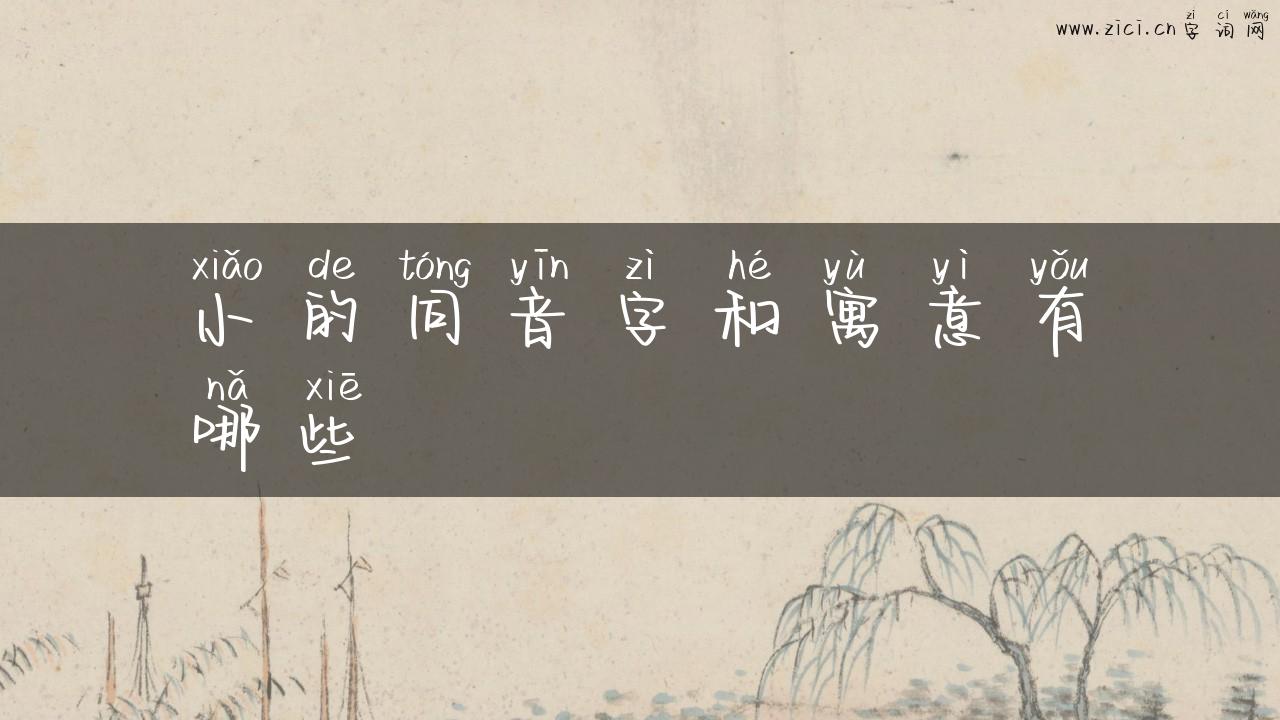 zì cí wǎng
www.zici.cn 字词网
xiǎo de tóng yīn zì hé yù yì yǒu
小的同音字和寓意有
nǎ xiē
哪些